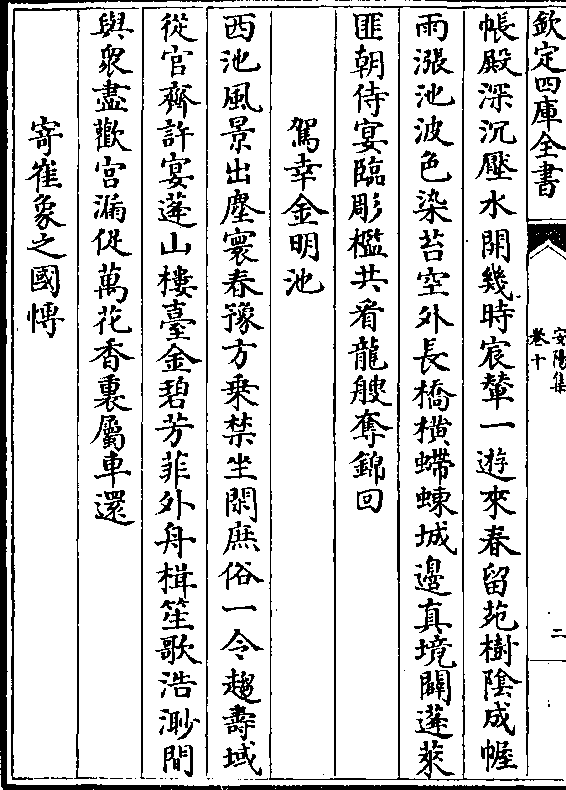 欽定四庫全書
安陽集
卷十
二
帳殿深沉壓水開幾時宸輦一遊來春留苑樹陰成幄
雨漲池波色染苔空外長橋橫螮蝀城邊真境闢蓬萊
匪朝侍宴臨彫檻共看龍艘奪錦回
駕幸金明池
西池風景出塵寰春豫方乗禁坐閑庶俗一令趨壽域
從官齊許宴蓬山樓臺金碧芳菲外舟楫笙歌浩渺間
與衆盡歡宫漏促萬花香裏屬車還
寄崔象之國博